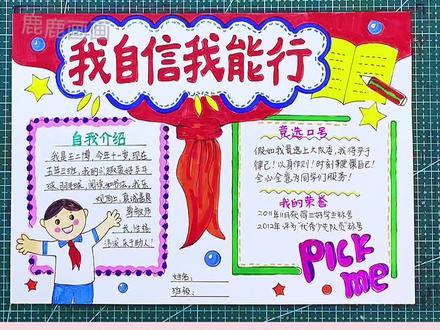 鹿鹿画画
我自信我能行
自我介绍
我是王二博,今年十一岁,现在
五年三班,我的兴趣爱好乒乓
球、羽毛球、阅读和
尊敬师
我性格
活泼、乐于助人!
竞选口号
假如我竞选上大队委,我将严于
律己!以身作则!时刻鞭策自己!
全心全意为同学们服务!
我的荣誉
2011年11月获得三好学生称号
2012年评为"优秀少先队员"称号
Pick
me
姓名:
班级: